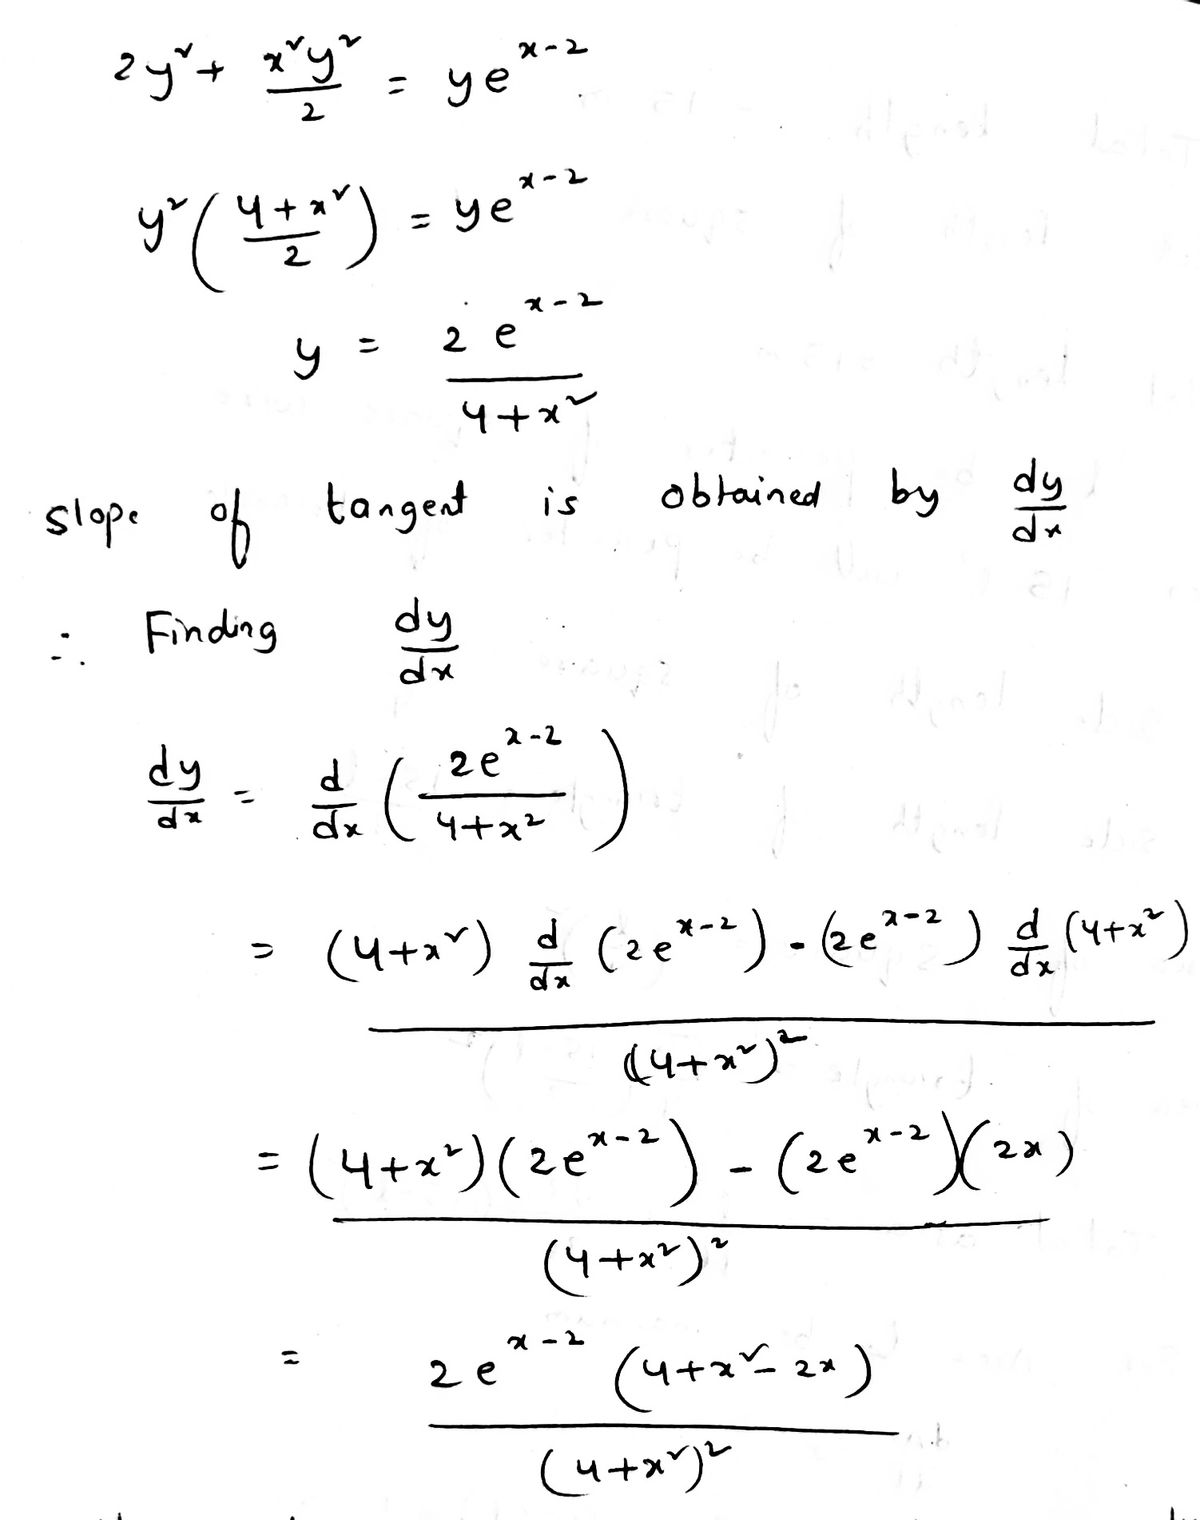 2y² + x²y²/2 = ye^(x-2)
y²((4+x²)/2) = ye^(x-2)
y = 2e^(x-2)/(4+x²)
slope of tangent is obtained by dy/dx
∴ Finding dy/dx
dy/dx = d/dx (2e^(x-2)/(4+x²))
= ((4+x²) d/dx (2e^(x-2)) - (2e^(x-2)) d/dx (4+x²))/(4+x²)²
= ((4+x²)(2e^(x-2)) - (2e^(x-2))(2x))/(4+x²)²
= 2e^(x-2) (4+x²-2x)/(4+x²)²